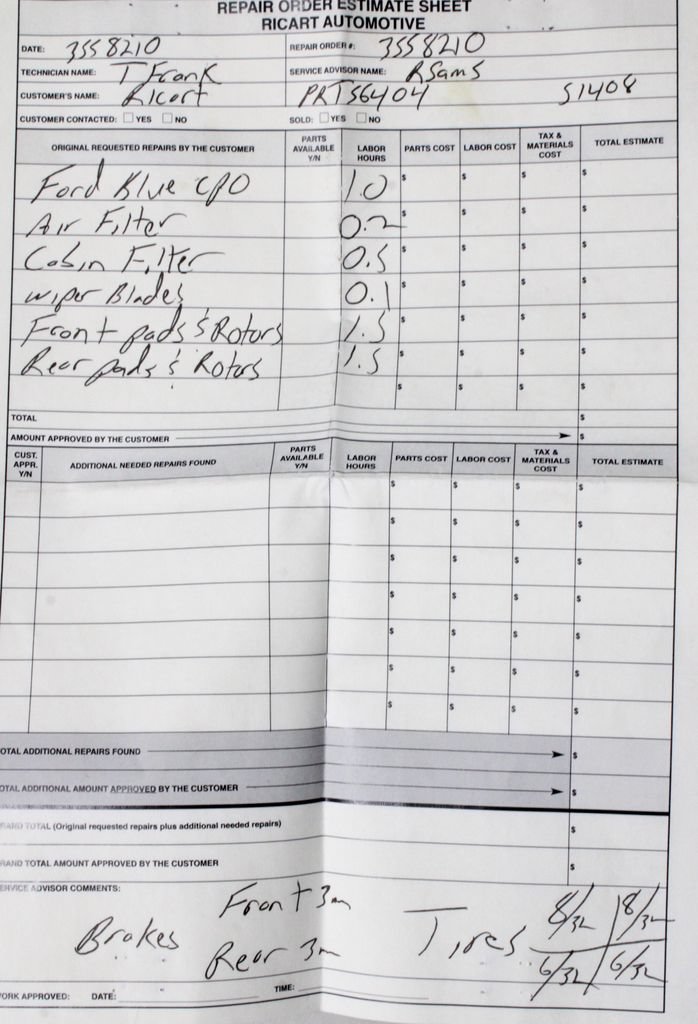 REPAIR ORDER ESTIMATE SHEET
RICART AUTOMOTIVE
DATE: 3558210 REPAIR ORDER #: 3558210
TECHNICIAN NAME: T Frank SERVICE ADVISOR NAME: R Sams
CUSTOMER'S NAME: Ricart PRT56404 S1408
CUSTOMER CONTACTED: YES NO SOLD: YES NO
ORIGINAL REQUESTED REPAIRS BY THE CUSTOMER PARTS AVAILABLE Y/N LABOR HOURS PARTS COST LABOR COST TAX & MATERIALS COST TOTAL ESTIMATE
Ford Blue CPO 1.0 $ $ $ $
Air Filter 0.2 $ $ $ $
Cabin Filter 0.5 $ $ $ $
wiper Blades 0.1 $ $ $ $
Front pads & Rotors 1.5 $ $ $ $
Rear pads & Rotors 1.5 $ $ $ $
$ $ $ $
TOTAL $
AMOUNT APPROVED BY THE CUSTOMER $
CUST. APPR. Y/N ADDITIONAL NEEDED REPAIRS FOUND PARTS AVAILABLE Y/N LABOR HOURS PARTS COST LABOR COST TAX & MATERIALS COST TOTAL ESTIMATE
$ $ $ $
$ $ $ $
$ $ $ $
$ $ $ $
$ $ $ $
$ $ $ $
$ $ $ $
OTAL ADDITIONAL REPAIRS FOUND $
OTAL ADDITIONAL AMOUNT APPROVED BY THE CUSTOMER $
RAND TOTAL (Original requested repairs plus additional needed repairs) $
RAND TOTAL AMOUNT APPROVED BY THE CUSTOMER $
ERVICE ADVISOR COMMENTS:
Brakes Front 3m Tires 8/32 8/32
Rear 3m 6/32 6/32
ORK APPROVED: DATE: TIME: